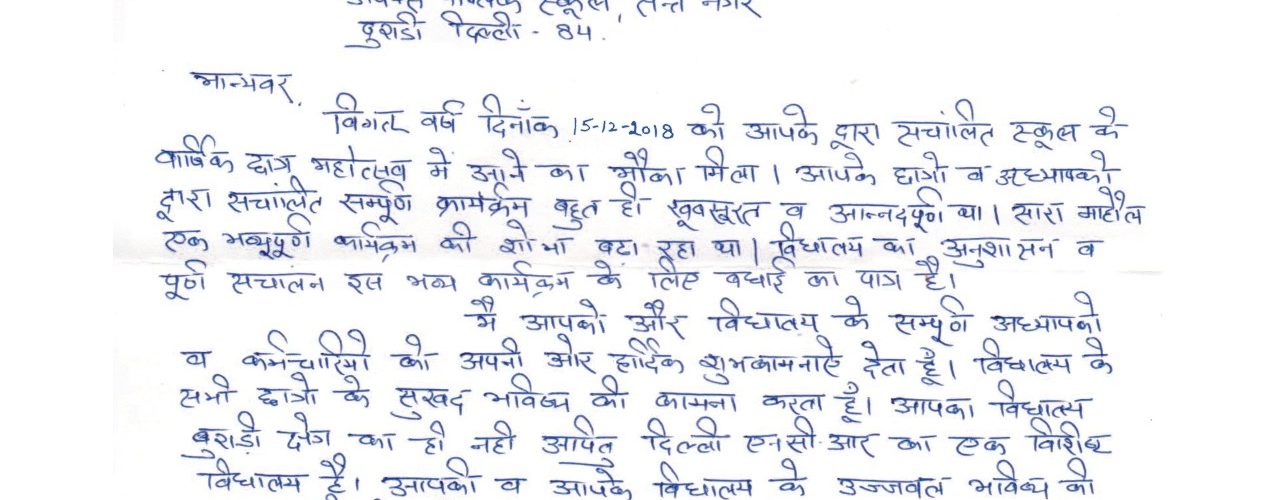 पब्लिक स्कूल, सन्त नगर
बुराडी दिल्ली - 84.
मान्यवर,
विगत वर्ष दिनाँक 15-12-2018 को आपके द्वारा सचांलित स्कूल के
वार्षिक छात्र महोत्सव में आने का मौका मिला। आपके छात्रो व अध्यापको
द्वारा सचांलित सम्पूर्ण कार्यक्रम बहुत ही खूबसूरत व आन्नदपूर्ण था। सारा माहौल
एक भव्यपूर्ण कार्यक्रम की शोभा बढा रहा था। विधालय का अनुशासन व
पूर्ण सचांलन इस भव्य कार्यक्रम के लिए बधाई का पात्र है।
मै आपको और विधालय के सम्पूर्ण अध्यापको
व कर्मचारियो को अपनी ओर हार्दिक शुभकामनाऐ देता हूँ। विधालय के
सभी छात्रो के सुखद भविष्य की कामना करता हूँ। आपका विधालय
बुराडी क्षेत्र का ही नही अपितु दिल्ली एन.सी.आर का एक विशिष्ठ
विधालय है। आपकी व आपके विधालय के उज्जवल भविष्य की